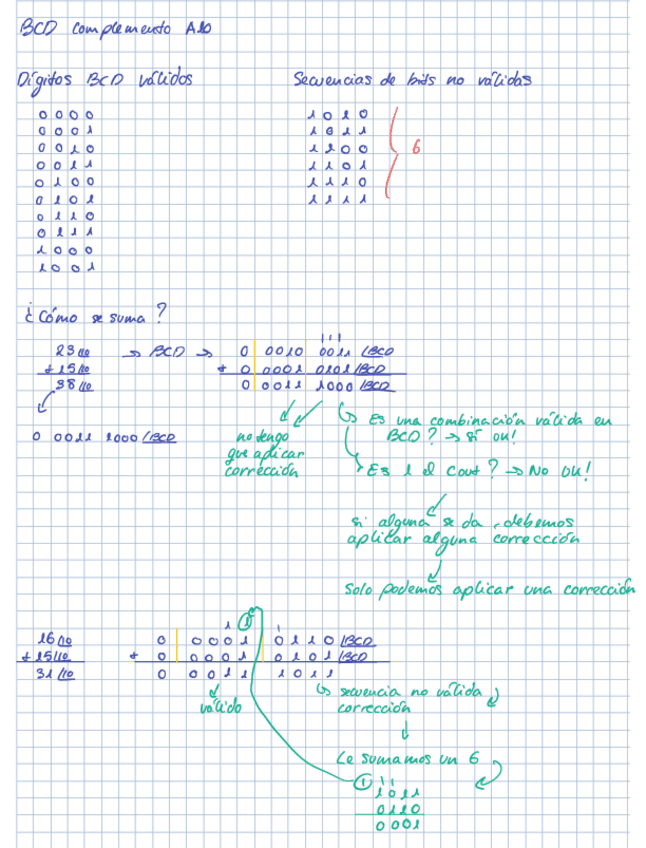 BCD complemento A10
Dígitos BCD válidos
Secuencias de bits no válidas
0 0 0 0
0 0 0 1
0 0 1 0
0 0 1 1
0 1 0 0
0 1 0 1
0 1 1 0
0 1 1 1
1 0 0 0
1 0 0 1
1 0 1 0
1 0 1 1
1 1 0 0
1 1 0 1
1 1 1 0
1 1 1 1
6
¿Cómo se suma?
23/10 → BCD →
+ 15/10
38/10
0 0011 1000/BCD
1 1 1
0 0010 0011 /BCD
+ 0 0001 0101/BCD
0 0011 1000/BCD
no tengo
que aplicar
corrección
Es una combinación válida en
BCD? → Sí OK!
Es 1 el Cout? → No OK!
si alguna se da, debemos
aplicar alguna corrección
Solo podemos aplicar una corrección
16/10
+ 15/10
31/10
1 1 1
0 0001 0110/BCD
+ 0 0001 0101/BCD
0 0011 1011
válido
secuencia no válida
corrección
Le sumamos un 6
1 1 1
1011
0110
0001